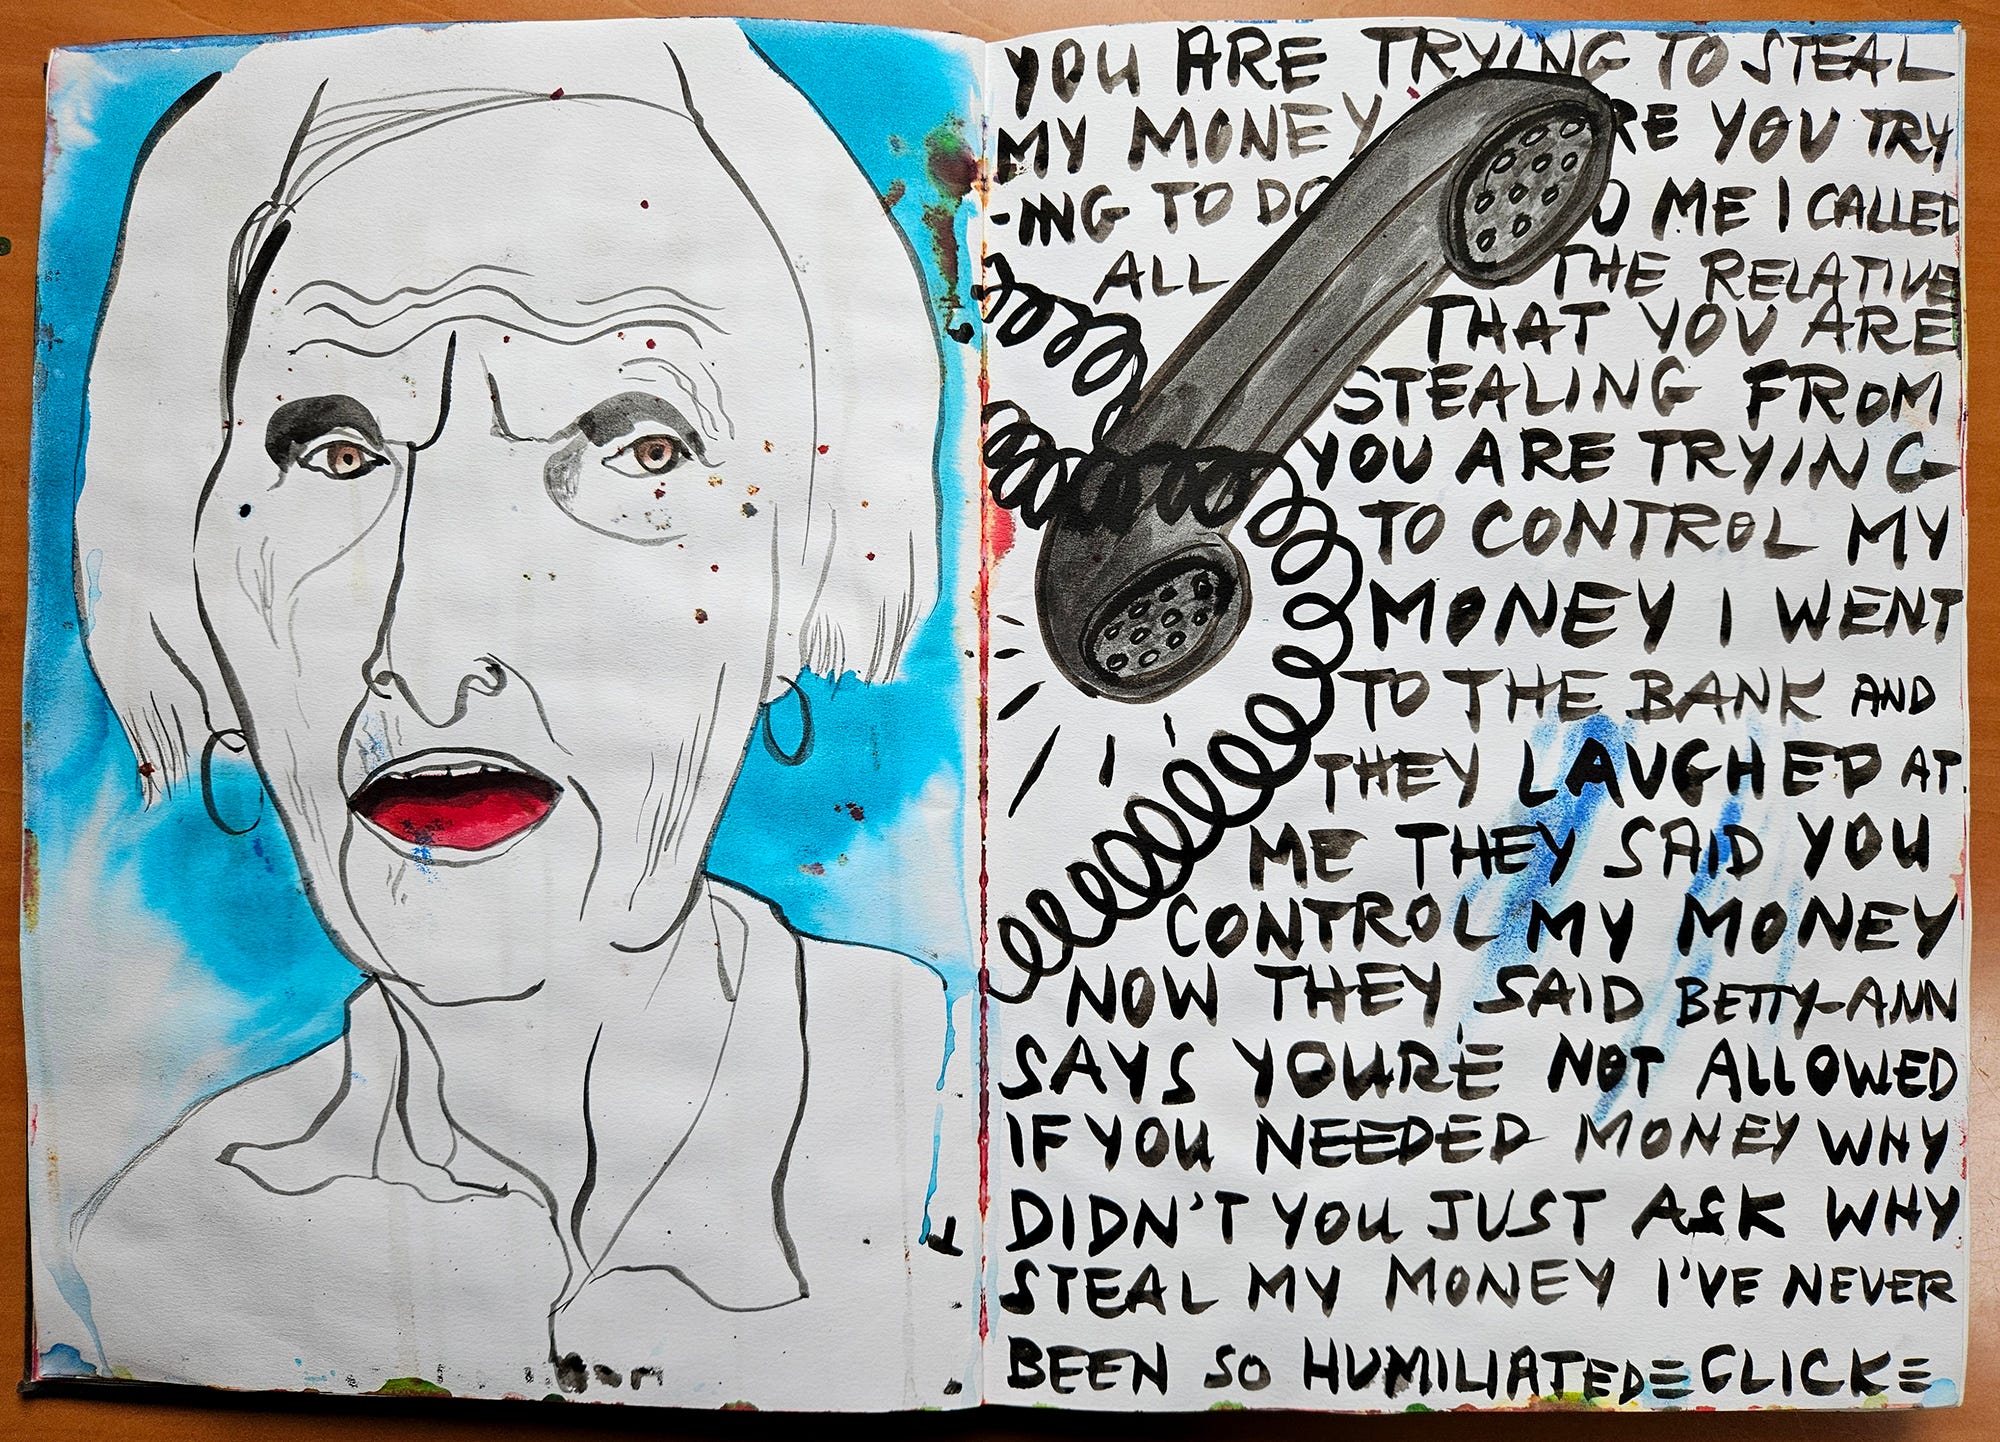 YOU ARE TRYING TO STEAL
MY MONEY RE YOU TRY
-ING TO DO O ME I CALLED
ALL THE RELATIVE
THAT YOU ARE
STEALING FROM
YOU ARE TRYING
TO CONTROL MY
MONEY I WENT
TO THE BANK AND
THEY LAUGHED AT
ME THEY SAID YOU
CONTROL MY MONEY
NOW THEY SAID BETTY-ANN
SAYS YOUR'E NOT ALLOWED
IF YOU NEEDED MONEY WHY
DIDN'T YOU JUST ASK WHY
STEAL MY MONEY I'VE NEVER
BEEN SO HUMILIATED≡CLICK≡